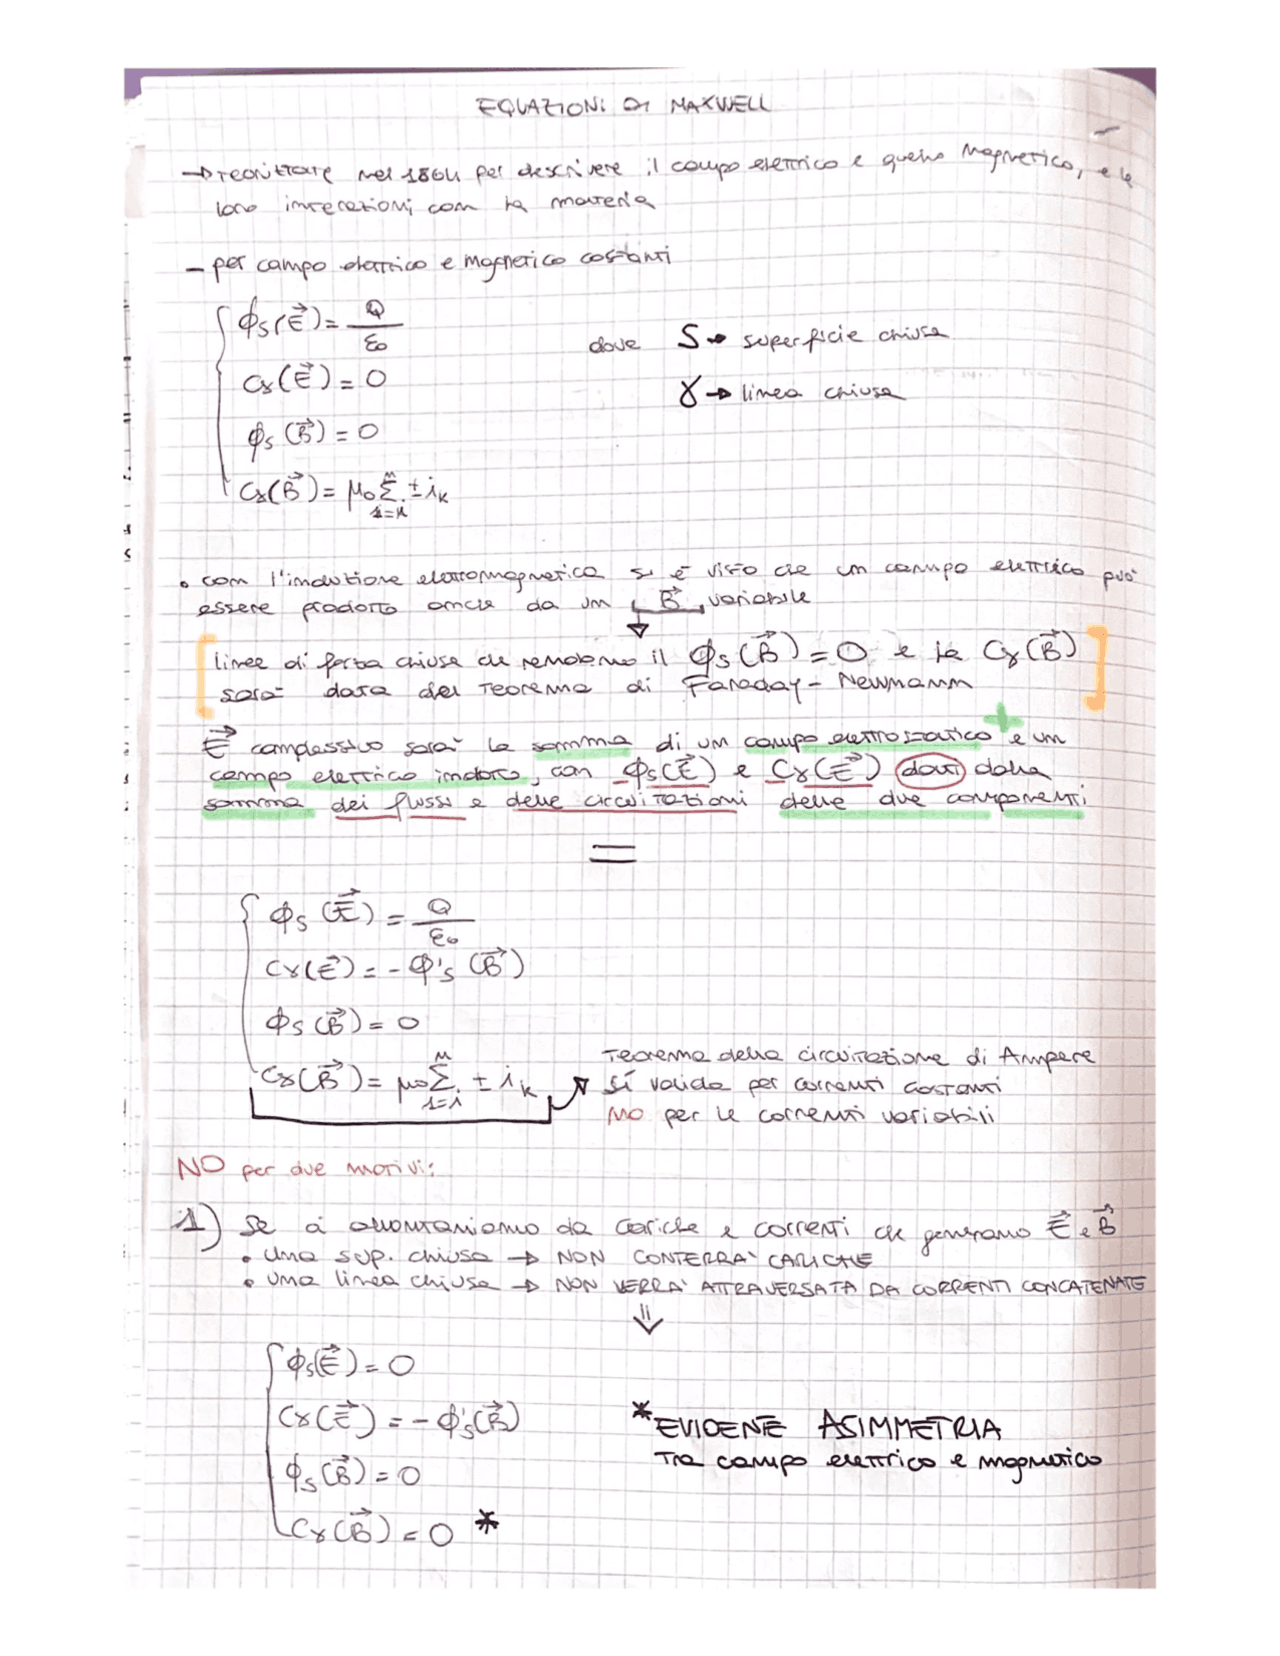 EQUAZIONI DI MAXWELL
→ teorizzate nel 1864 per descrivere il campo elettrico e quello magnetico, e le
loro interazioni con la materia
- per campo elettrico e magnetico costanti
ϕS(E⃗) = Q/ε0
dove S → superficie chiusa
Cγ(E⃗) = 0
γ → linea chiusa
ϕS(B⃗) = 0
Cγ(B⃗) = μ0 Σ ± iK
• con l'induzione elettromagnetica si è visto che un campo elettrico può
essere prodotto anche da un B⃗ variabile
[linee di forza chiuse che rendono il ϕS(B⃗) = 0 e la Cγ(B⃗)
sarà data dal teorema di Faraday-Newmann]
E⃗ complessivo sarà la somma di un campo elettrostatico + e un
campo elettrico indotto, con ϕS(E⃗) e Cγ(E⃗) dati dalla
somma dei flussi e delle circuitazioni delle due componenti
=
ϕS(E⃗) = Q/ε0
Cγ(E⃗) = -ϕ'S(B⃗)
ϕS(B⃗) = 0
Cγ(B⃗) = μ0 Σ ± iK
Teorema della circuitazione di Ampere
sí valida per correnti costanti
NO per le correnti variabili
NO per due motivi:
1) Se ci allontaniamo da cariche e correnti che generano E⃗ e B⃗
• una sup. chiusa → NON CONTERRA' CARICHE
• una linea chiusa → NON VERRA' ATTRAVERSATA DA CORRENTI CONCATENATE
⇓
ϕS(E⃗) = 0
Cγ(E⃗) = -ϕ'S(B⃗)
ϕS(B⃗) = 0
Cγ(B⃗) = 0 *
* EVIDENTE ASIMMETRIA
tra campo elettrico e magnetico